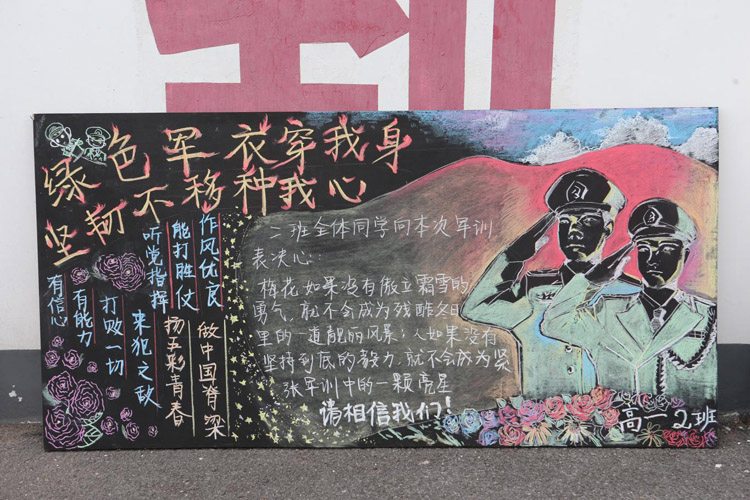 绿色军衣穿我身
坚韧不移种我心
听党指挥
能打胜仗
作风优良
有信心
有能力
打败一切
来犯之敌
扬五彩青春
做中国脊梁
二班全体同学向本次军训
表决心:
梅花如果没有傲立霜雪的
勇气,就不会成为残酷冬日
里的一道靓丽风景;人如果没有
坚持到底的毅力,就不会成为紧
张军训中的一颗亮星
请相信我们!
高一2班